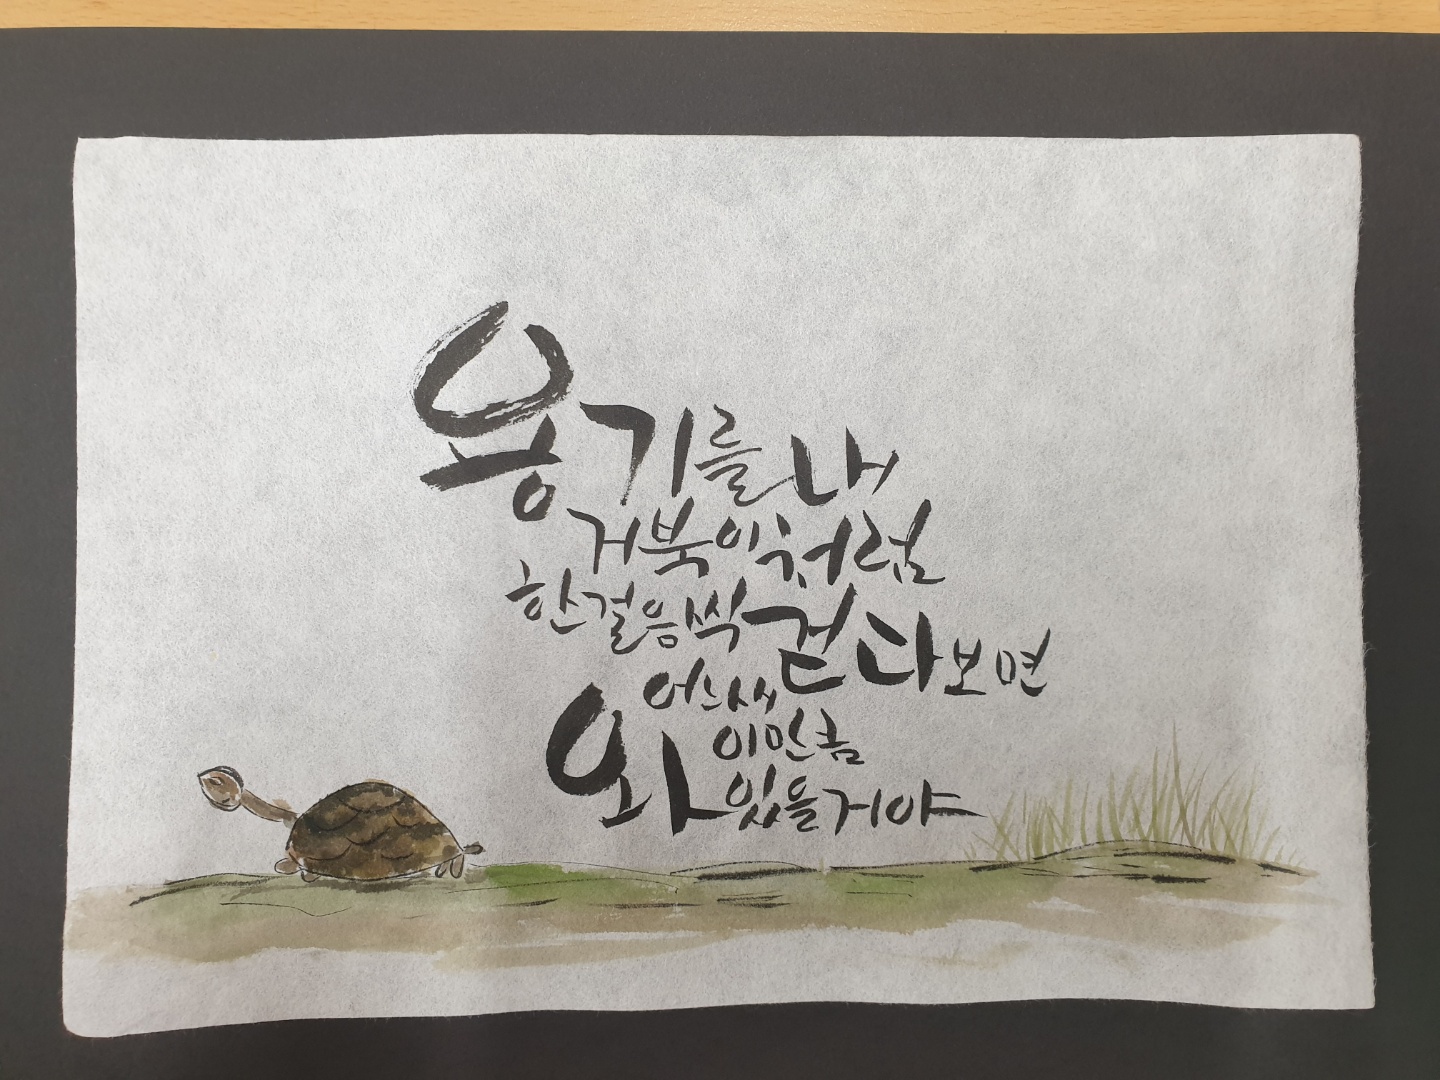 용기를 내
거북이처럼
한걸음씩 걷다보면
어느새
이만큼
와있을거야